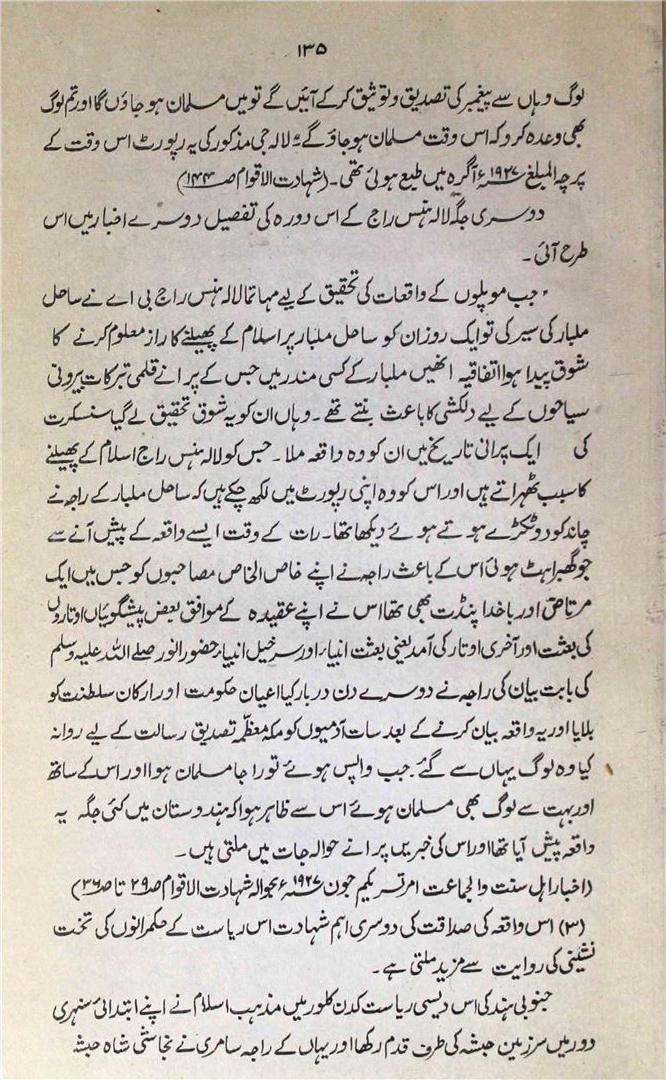 ۱۳۵
لوگ وہاں سے پیغمبر کی تصدیق و توثیق کر کے آئیں گے تو میں مسلمان ہو جاؤں گا اور تم لوگ
بھی وعدہ کرو کہ اس وقت مسلمان ہو جاؤ گے" لالہ جی مذکور کی یہ رپورٹ اس وقت کے
پرچہ المبلغ ۱۹۲۷ء آگرہ میں طبع ہوئی تھی۔ (شہادت الاقوام صـ۱۴۴)
دوسری جگہ لالہ ہنس راج کے اس دورہ کی تفصیل دوسرے اخبار میں اس
طرح آئی۔
"جب موپلوں کے واقعات کی تحقیق کے لیے مہاتما لالہ ہنس راج بی اے نے ساحل
ملبار کی سیر کی تو ایک روز ان کو ساحل ملبار پر اسلام کے پھیلنے کا راز معلوم کرنے کا
شوق پیدا ہوا اتفاقیہ انھیں ملبار کے کسی مندر میں جس کے پرانے قلمی تبرکات بیرونی
سیاحوں کے لیے دلکشی کا باعث بنتے تھے۔ وہاں ان کو یہ شوق تحقیق لے گیا سنسکرت
کی ایک پرانی تاریخ میں ان کو وہ واقعہ ملا۔ جس کو لالہ ہنس راج اسلام کے پھیلنے
کا سبب ٹھہراتے ہیں اور اس کو وہ اپنی رپورٹ میں لکھ چکے ہیں کہ ساحل ملبار کے راجہ نے
چاند کو دو ٹکڑے ہوتے ہوئے دیکھا تھا۔ رات کے وقت ایسے واقعہ کے پیش آنے سے
جو گھبراہٹ ہوئی اس کے باعث راجہ نے اپنے خاص الخاص مصاحبوں کو جس میں ایک
مرتاض اور باخدا پنڈت بھی تھا اس نے اپنے عقیدہ کے موافق بعض پیشگوئیاں اوتاروں
کی بعثت اور آخری اوتار کی آمد یعنی بعثت انبیاء اور سرخیل انبیاء حضور انور صلے اللہ علیہ وسلم
کی بابت بیان کی راجہ نے دوسرے دن دربار کیا اعیان حکومت اور ارکان سلطنت کو
بلایا اور یہ واقعہ بیان کرنے کے بعد سات آدمیوں کو مکہ معظّمہ تصدیق رسالت کے لیے روانہ
کیا وہ لوگ یہاں سے گئے۔ جب واپس ہوئے تو راجا مسلمان ہوا اور اس کے ساتھ
اور بہت سے لوگ بھی مسلمان ہوئے اس سے ظاہر ہوا کہ ہندوستان میں کئی جگہ یہ
واقعہ پیش آیا تھا اور اس کی خبریں پرانے حوالہ جات میں ملتی ہیں۔
(اخبار اہل سنت والجماعت امرتسر یکم جون ۱۹۲۷ء بحوالہ شہادت الاقوام صـ۲۹ تا صـ۳۶)
(۳) اس واقعہ کی صداقت کی دوسری اہم شہادت اس ریاست کے حکمرانوں کی تخت
نشینی کی روایت سے مزید ملتی ہے۔
جنوبی ہند کی اس دیسی ریاست کدن کلور میں مذہب اسلام نے اپنے ابتدائی سنہری
دور میں سرزمین حبشہ کی طرف قدم رکھا اور یہاں کے راجہ سامری نے نجاشی شاہ حبشہ